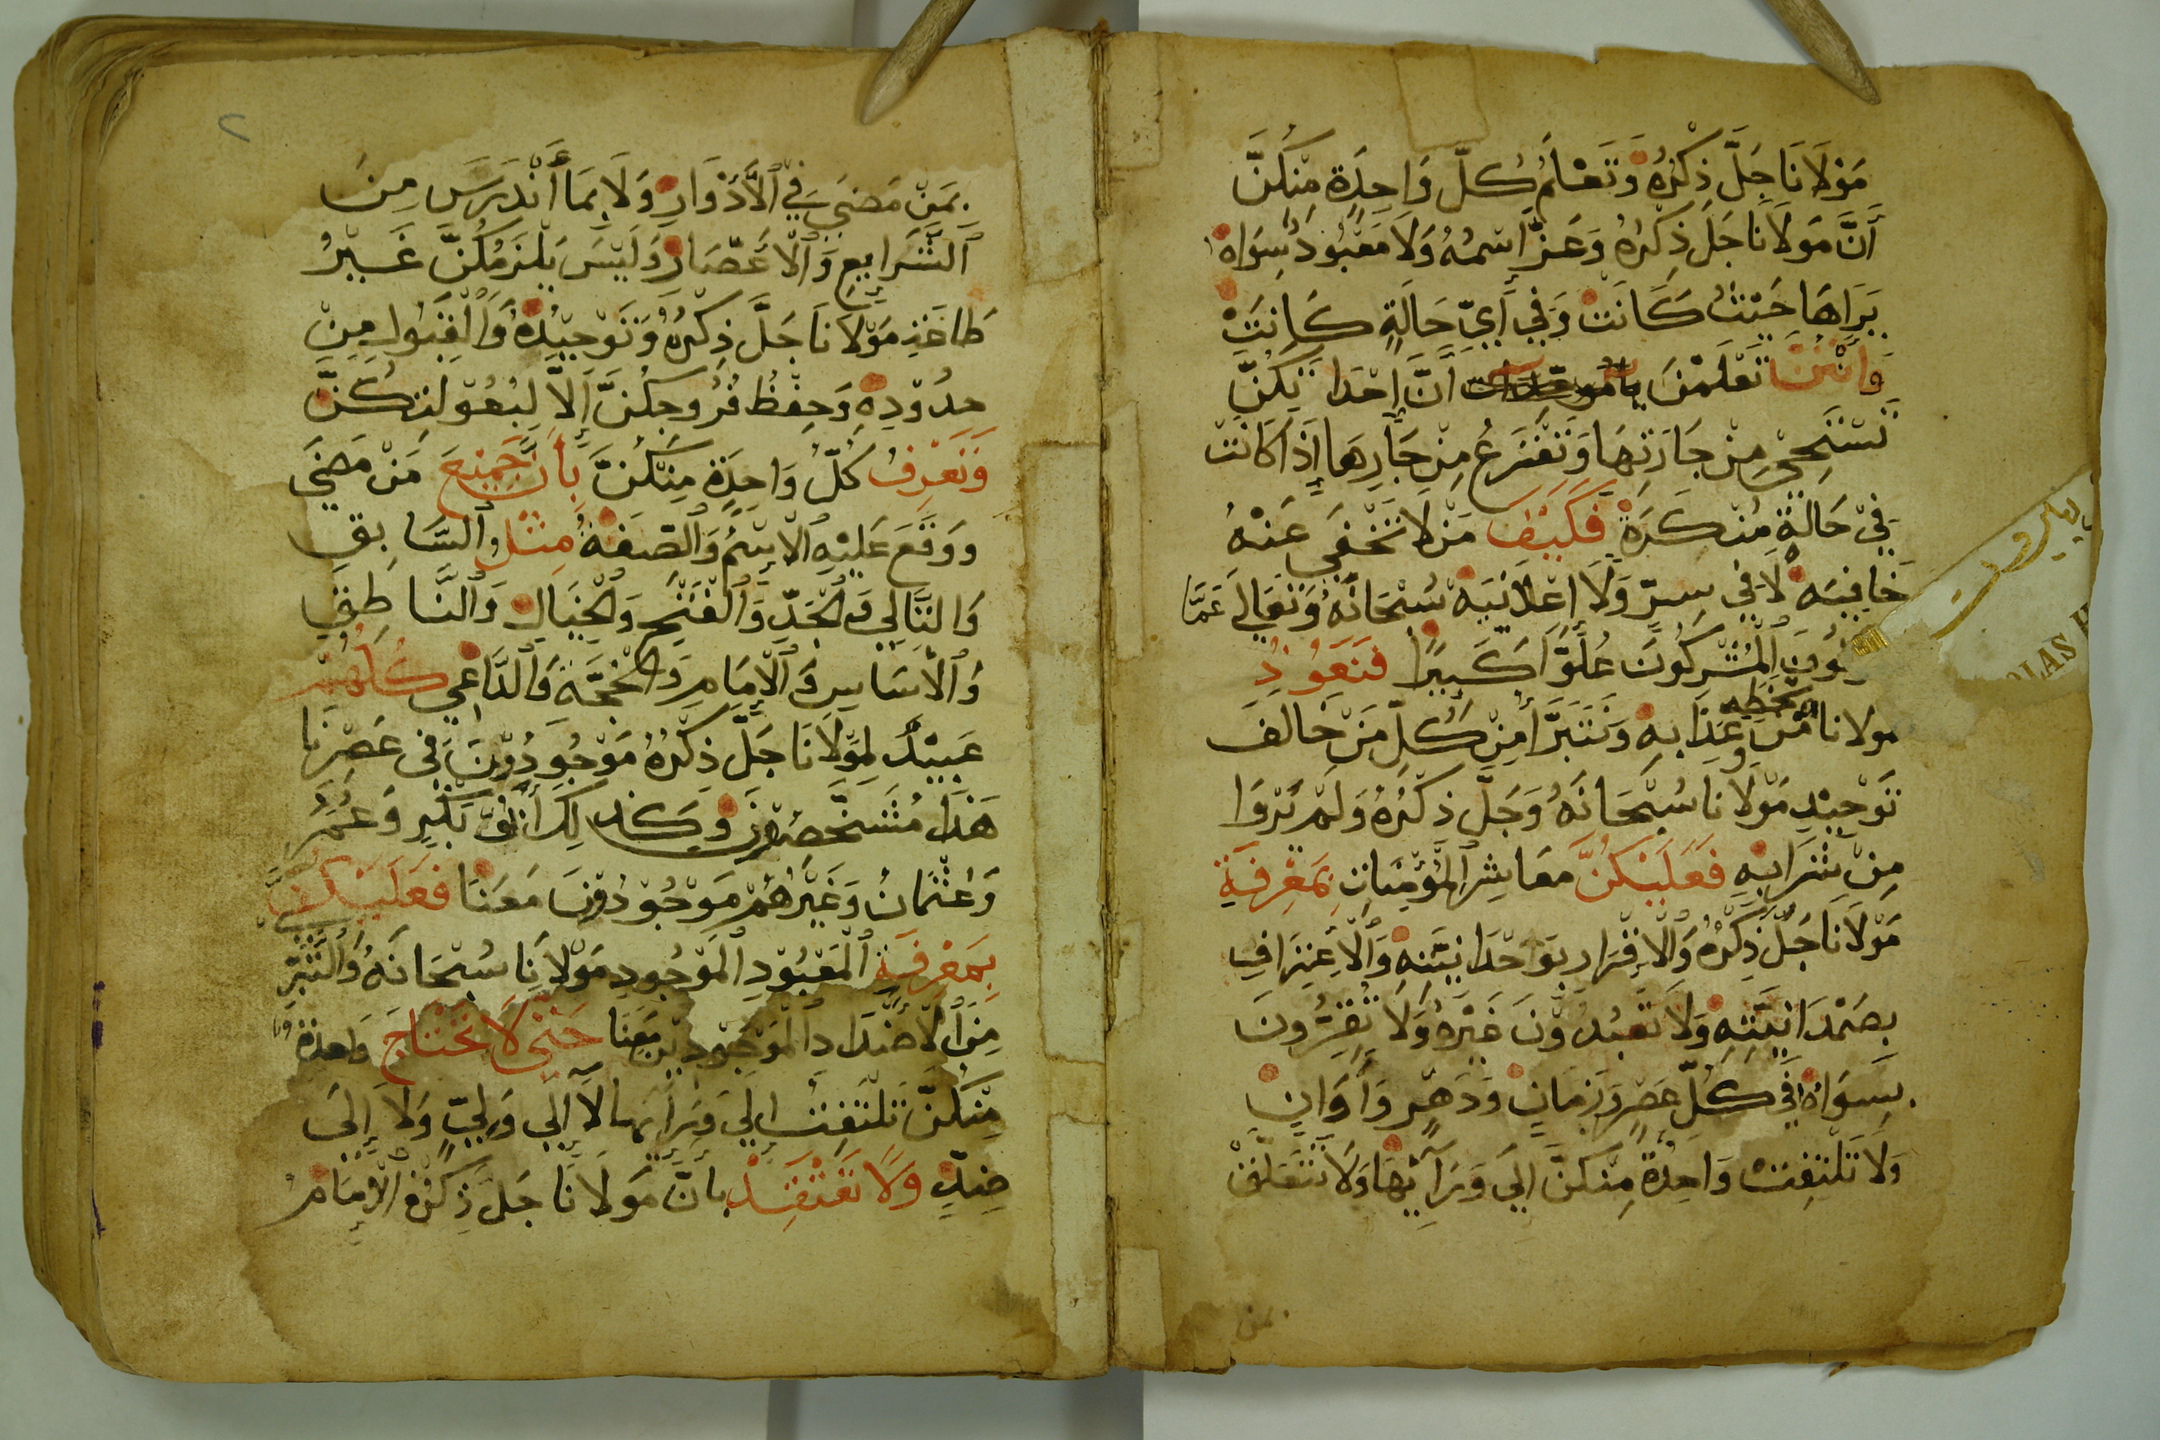 مَوْلَانَا جَلَّ ذِكْرُهُ وَتَعْلَمُ كُلّ وَاحِدَة مِنْكُنَّ
أَنَّ مَوْلَانَا جَلَّ ذِكْرُهُ وَعَزَّ اسْمُهُ وَلَا مَعْبُودَ سِوَاهُ
يَرَاهَا حَيْثُ كَانَتْ وَفِي أَيِّ حَالَةٍ كَانَتْ
وَانْتُنَّ تَعْلَمْنَ أَنَّ إِحْدَا يَكُنَّ
تَسْتَحِي مِنْ جَارَتِهَا وَتَفْزَعُ مِنْ جَارِهَا إِذَا كَانَتْ
فِيْ حَالَةٍ مُنْكَرَةٍ فَكَيْفَ مَنْ لَا تَخْفَى عَنْهُ
خَافِيَه لَا فِي سِرٍّ وَلَا إِعْلَانِيَه سُبْحَانَهُ وَتَعَالَى عَمَّا
الْمُشْرِكُونَ عُلُوًّا كَبِيرًا فَنَعُوذُ
مولانا مِنْ سخطه وعَذَابِهِ وَنَتَبَرَّأ مِنْ كُلِّ مَنْ خَالَفَ
تَوْحِيْدِ مَوْلَانَا سُبْحَانَهُ وَجَلَّ ذِكْرُهُ وَلَمْ يَرْوَا
مِنْ شَرَابِهِ فَعَلَيْكُنَّ مَعَاشِر الْمُؤْمِنَاتِ بِمَعْرِفَةِ
مَوْلَانَا جَلَّ ذِكْرُهُ وَالْإِقْرَارِ بِوَحْدَانِيَّتِهِ وَالْأِعْتِرَافِ
بِصَمْدَانِيَّتِهِ وَلَا تَعْبُدُوْنَ غَيْرَهُ وَلَا تُقِرُّونَ
بِسِوَاهُ فِي كُلِّ عَصْرٍ وَزَمَانٍ وَدَهْرٍ وَأَوَانٍ
وَلَا تَلْتَفِتْ وَاحِدَةٌ مِنْكُنَّ إِلَى وَرَآئِهَا وَلَا تَتَعَلَّقْ
بمن
٢
بِمَنْ مَضَى فِي الْأَدْوَارِ وَلَا بِمَا أَنْدَرَسَ مِنَ
الشَّرَايِعِ وَالْأَعْصَارِ وَلَيْسَ يَلْزَمُكُنَّ غَيْرُ
طَاعَةِ مَوْلَانَا جَلَّ ذِكْرُهُ وَتَوْحِيْدُهُ وَالْقَبُولِ مِنْ
حِدُوْدِهِ وَحِفْظُ فُرُوجِكُنَّ إِلَّا لِبُعُوْلَتِكُنَّ
وَتَعْرِفُ كُلُّ وَاحِدَةٍ مِنْكُنَّ بِأَنَّ جَمِيْعَ مَنْ مَضَى
وَوَقَعَ عَلَيْهِ الْإِسْمُ وَالصِّفَةُ مِثْلُ السَّابِقِ
وَالتَّالِي وَالْجَدِّ وَالْفَتْحِ وَالْخَيَالِ وَالنَّاطِقِ
وَالْأَسَاسِ وَالْإِمَامِ وَالْحُجَّةِ وَالدَّاعِي كُلُّهُمْ
عَبِيْدٌ لِمَوْلَانَا جَلَّ ذِكْرُهُ مَوْجُوَدُوْنَ فِي عَصْرِنَا
هَذَا مُتَشَخِّصُوْنَ وَكَذَلِكَ أَبُو بَكْرٍ وَعُمَرُ
وَعُثْمَانُ وَغَيْرُهُمْ مَوْجُوْدُوْنَ مَعَنَا فَعَلَيْكُنَّ
بِمَعْرِفَةِ الْمَعْبُوْدِ الْمَوْجُودِ مَوْلَانَا سُبْحَانَهُ وَالتَّبَرِّي
مِنَ الْأَضْدَادِ الْمَوْجُوْدِيْنَ مَعَنَا حَتَّى لَا تَحْتَاجَ وَاحِدَةٌ
مِنْكُنَّ تَلْتَفِتْ إِلَى وَرَآئِهَا لَا إِلَى وَلِيٍّ وَلَا إِلَى
ضِدٍّ وَلَا تَعْتَقِدْ بِأَنَّ مَوْلَانَا جَلَّ ذِكْرُهُ الْإِمَامُ
بيروت